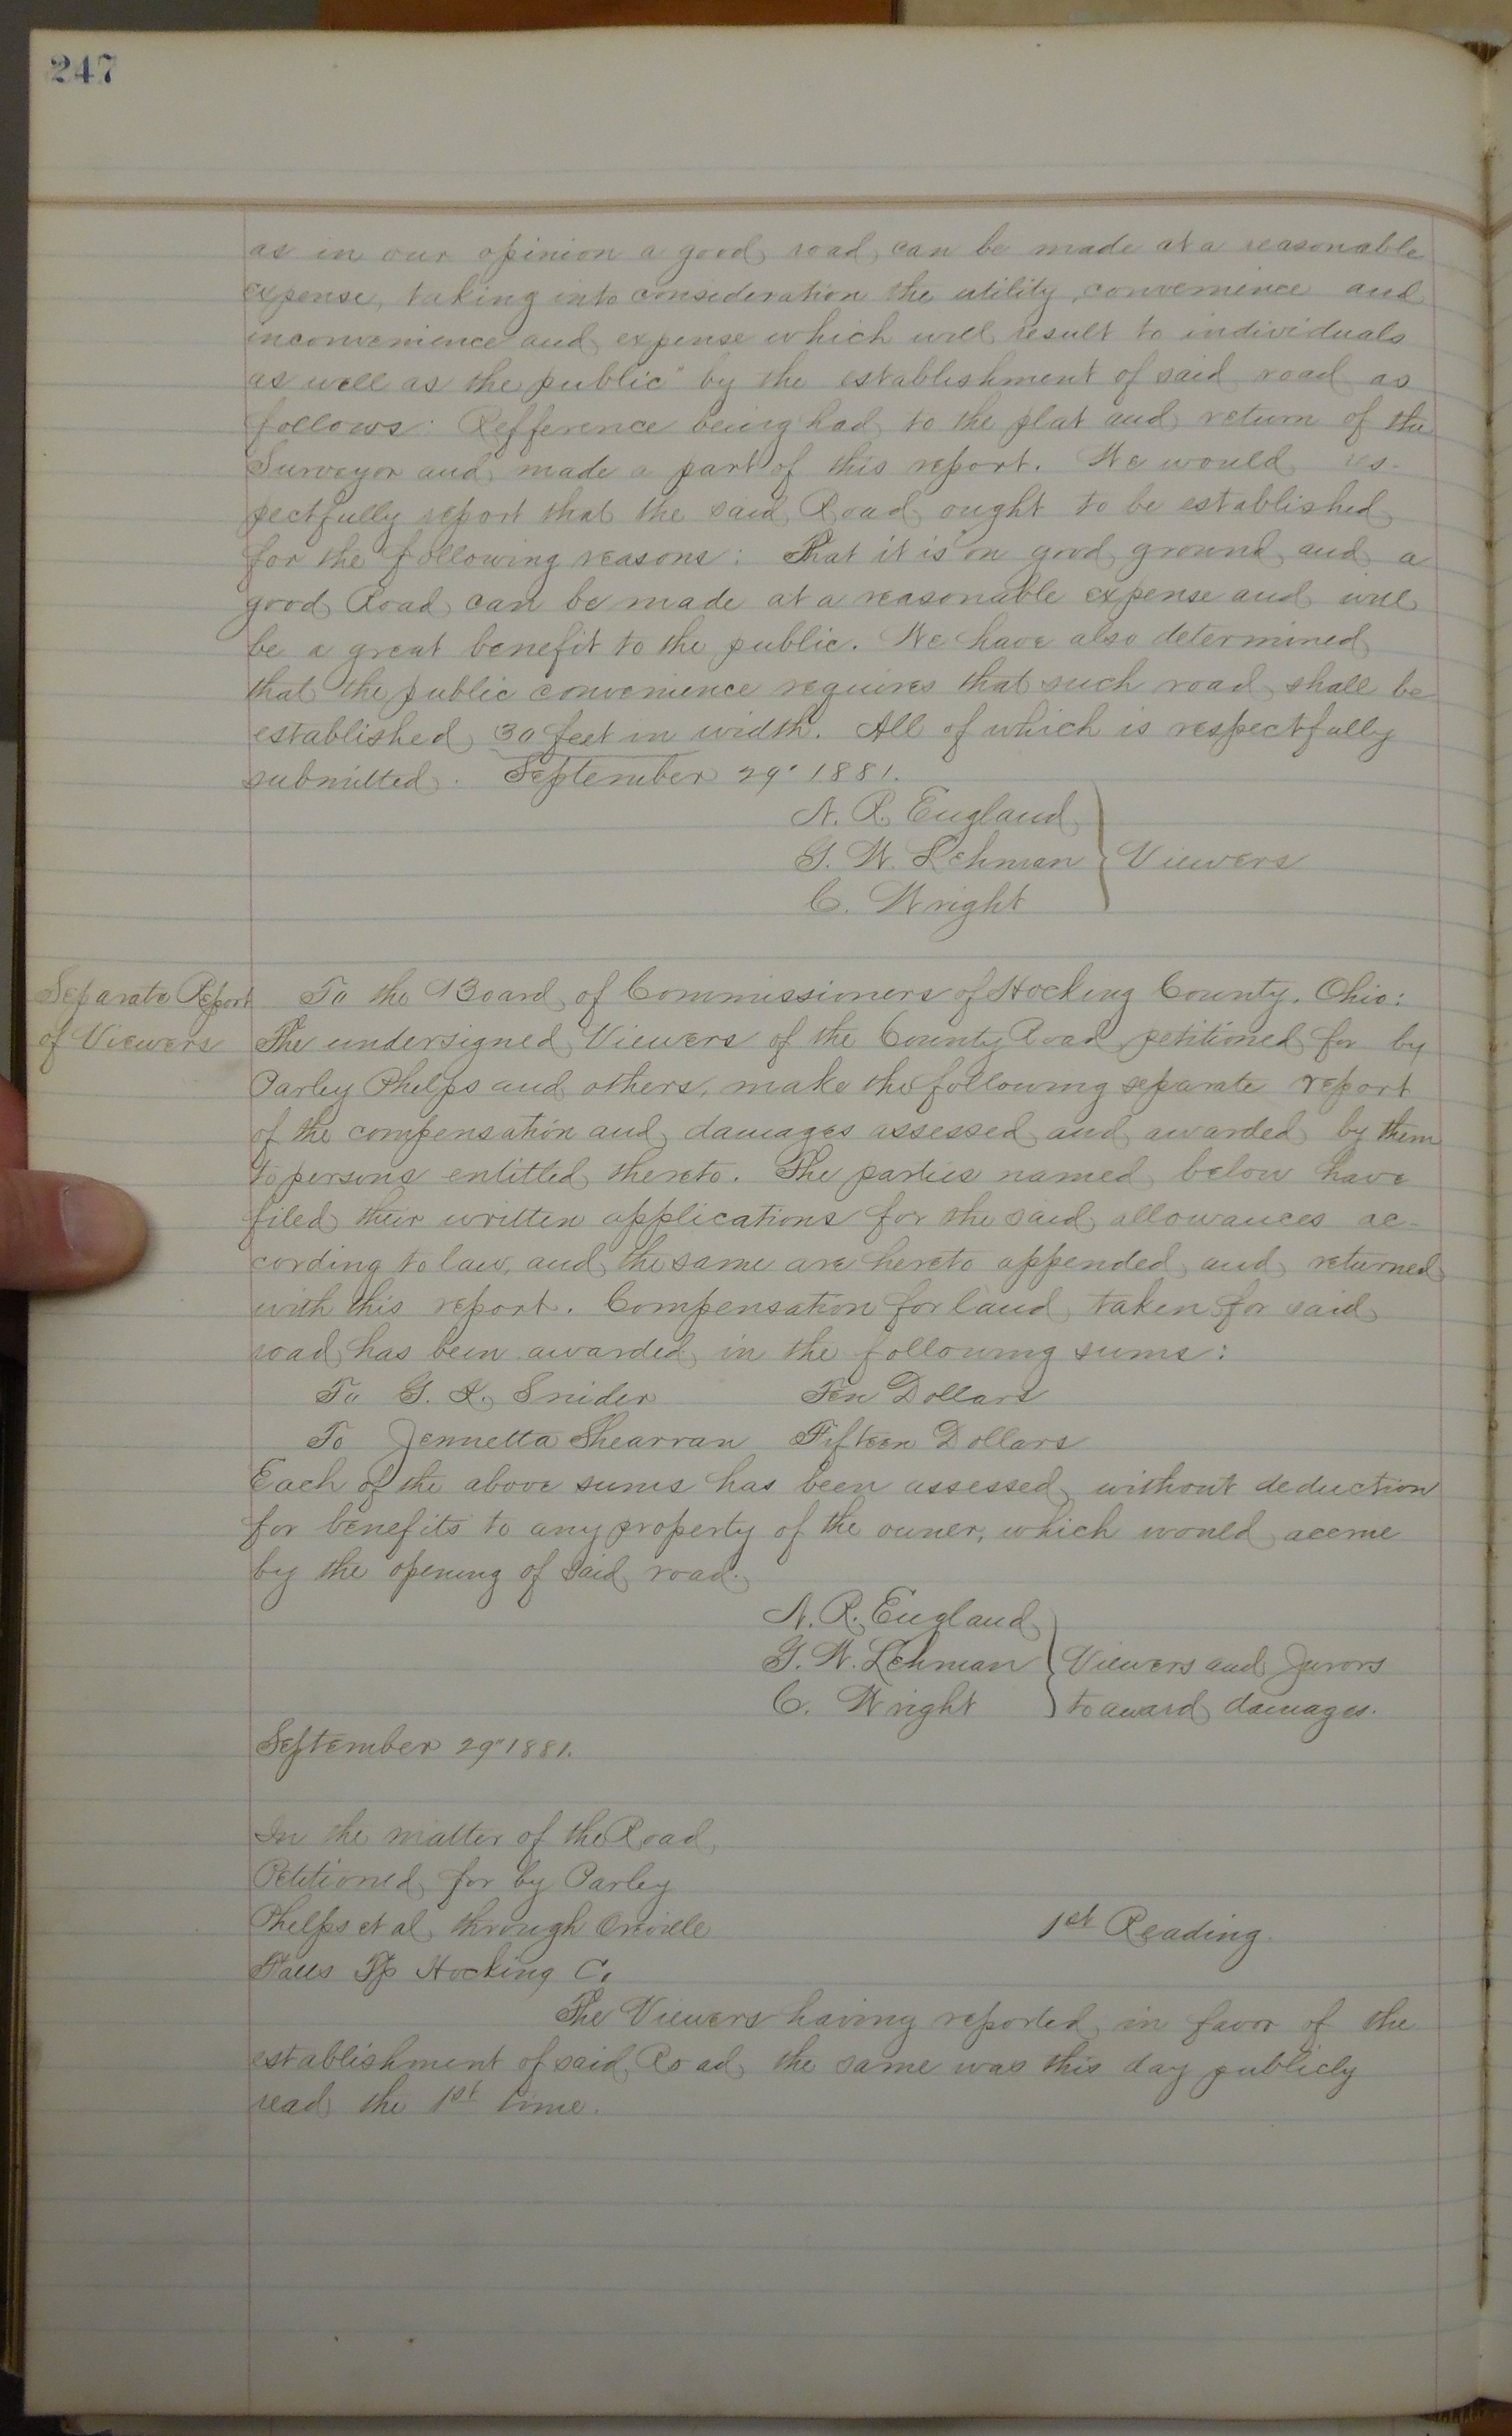 247
as in our opinion a good road, can be made at a reasonable
expense, taking into consideration the utility, convenience and
inconvenience and expense which will result to individuals
as well as the public" by the establishment of said road as
follows: Refference being had to the plat and return of the
Surveyor and made a part of this report. We would res-
pectfully report that the said Road ought to be established
for the following reasons: That it is on good ground and a
good Road can be made at a reasonable expense and will
be a great benefit to the public. We have also determined
that the public convenience requires that such road shall be
established 30 feet in width. All of which is respectfully
submitted. September 29" 1881.
N. R. England
G. W. Lehman } Viewers
C. Wright
Separate Report
of Viewers
To the Board of Commissioners of Hocking County, Ohio:
The undersigned Viewers of the County Road petitioned for by
Parley Phelps and others, make the following separate report
of the compensation and damages assessed and awarded by them
to persons entitled thereto. The parties named below have
filed their written applications for the said allowances ac-
cording to law, and the same are hereto appended and returned
with this report. Compensation for land taken for said
road has been awarded in the following sums:
To G. K. Snider Ten Dollars
To Jennetta Shearran Fifteen Dollars
Each of the above sums has been assessed without deduction
for benefits to any property of the owner, which would accrue
by the opening of said road.
N. R. England
G. W. Lehman } Viewers and Jurors
C. Wright to award damages.
September 29" 1881.
In the matter of the Road
Petitioned for by Parley
Phelps et al, through Orville
Falls Tp Hocking C. 1st Reading.
The Viewers having reported in favor of the
establishment of said Road the same was this day publicly
read the 1st time.